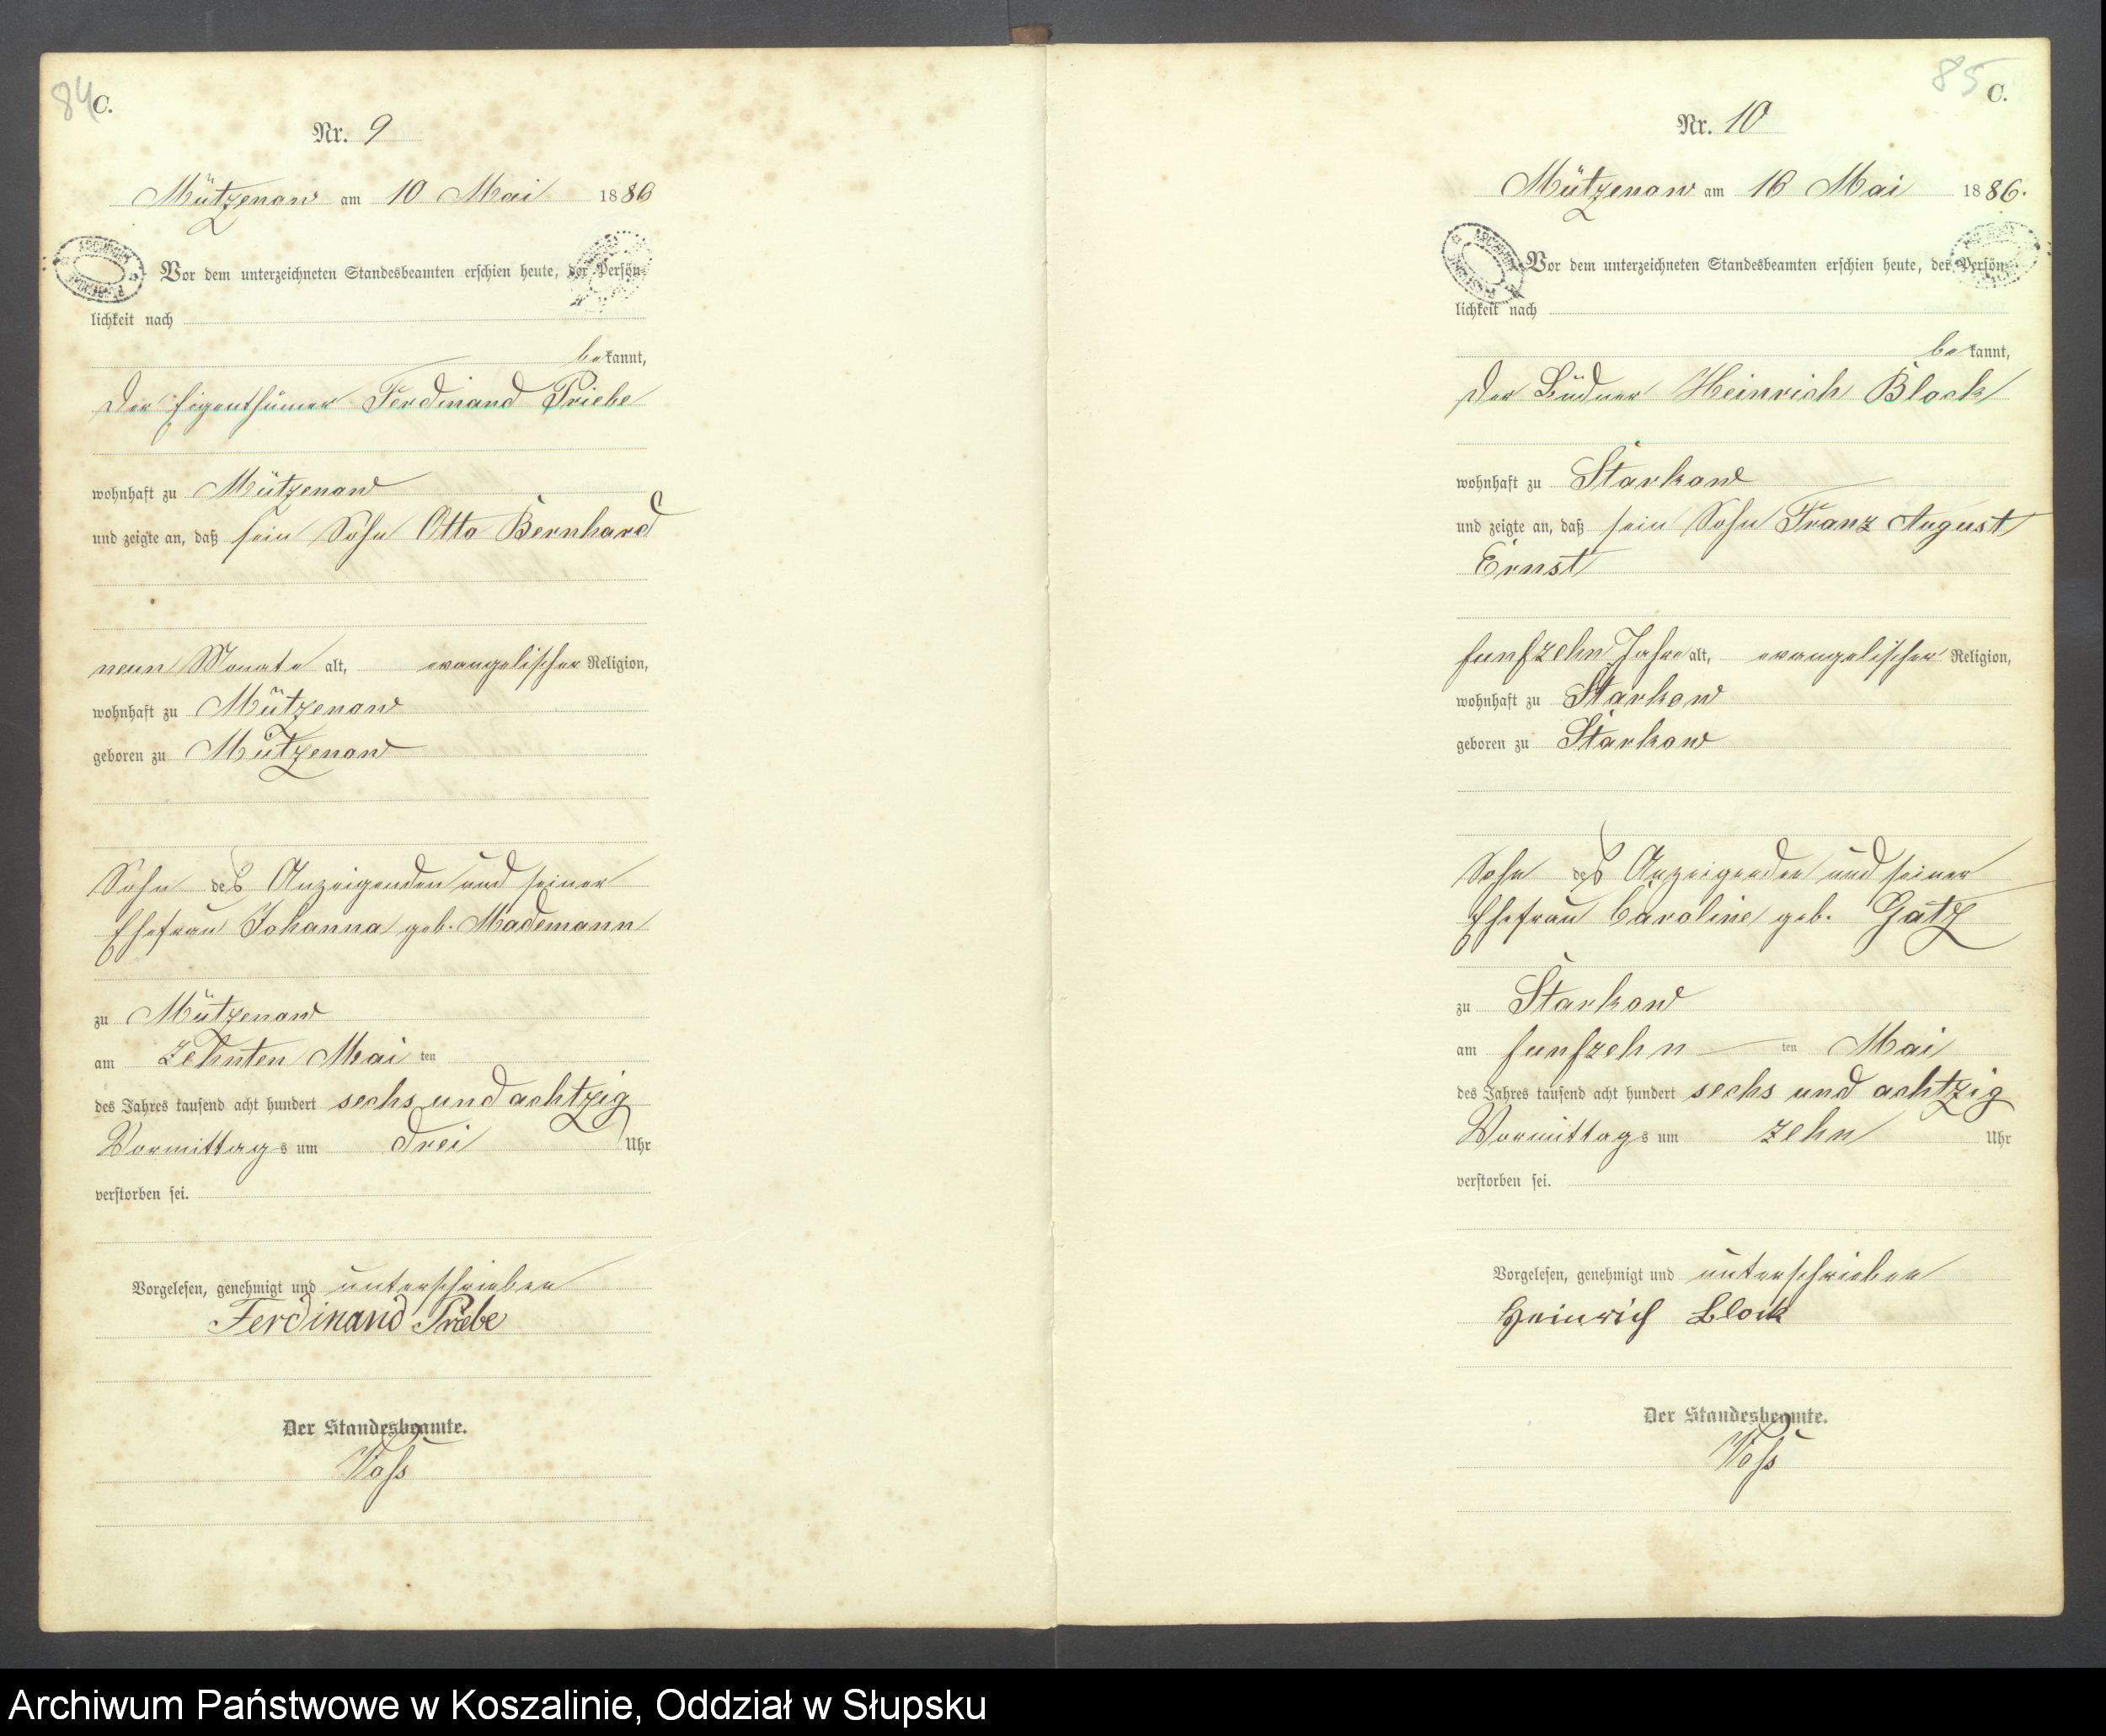 84 C.
Nr. 9
Mützenow am 10 Mai 1886
Vor dem unterzeichneten Standesbeamten erschien heute, der Persön-
lichkeit nach
bekannt,
der Eigenthümer Ferdinand Priebe
wohnhaft zu Mützenow
und zeigte an, daß sein Sohn Otto Bernhard
neun Monate alt, evangelischer Religion,
wohnhaft zu Mützenow
geboren zu Mützenow
Sohn des Anzeigenden und seiner
Ehefrau Johanna geb. Mademann
zu Mützenow
am Zehnten Mai ten
des Jahres tausend acht hundert sechs und achtzig
Vormittags um drei Uhr
verstorben sei.
Vorgelesen, genehmigt und unterschrieben
Ferdinand Priebe
Der Standesbeamte.
Voss
85 C.
Nr. 10
Mützenow am 16 Mai 1886.
Vor dem unterzeichneten Standesbeamten erschien heute, der Persön-
lichkeit nach
bekannt,
der Büdner Heinrich Block
wohnhaft zu Starkow
und zeigte an, daß sein Sohn Franz August
Ernst
funfzehn Jahre alt, evangelischer Religion,
wohnhaft zu Starkow
geboren zu Starkow
Sohn des Anzeigenden und seiner
Ehefrau Caroline geb. Gatz
zu Starkow
am funfzehn ten Mai
des Jahres tausend acht hundert sechs und achtzig
Vormittags um zehn Uhr
verstorben sei.
Vorgelesen, genehmigt und unterschrieben
Heinrich Block
Der Standesbeamte.
Voss
Archiwum Państwowe w Koszalinie, Oddział w Słupsku